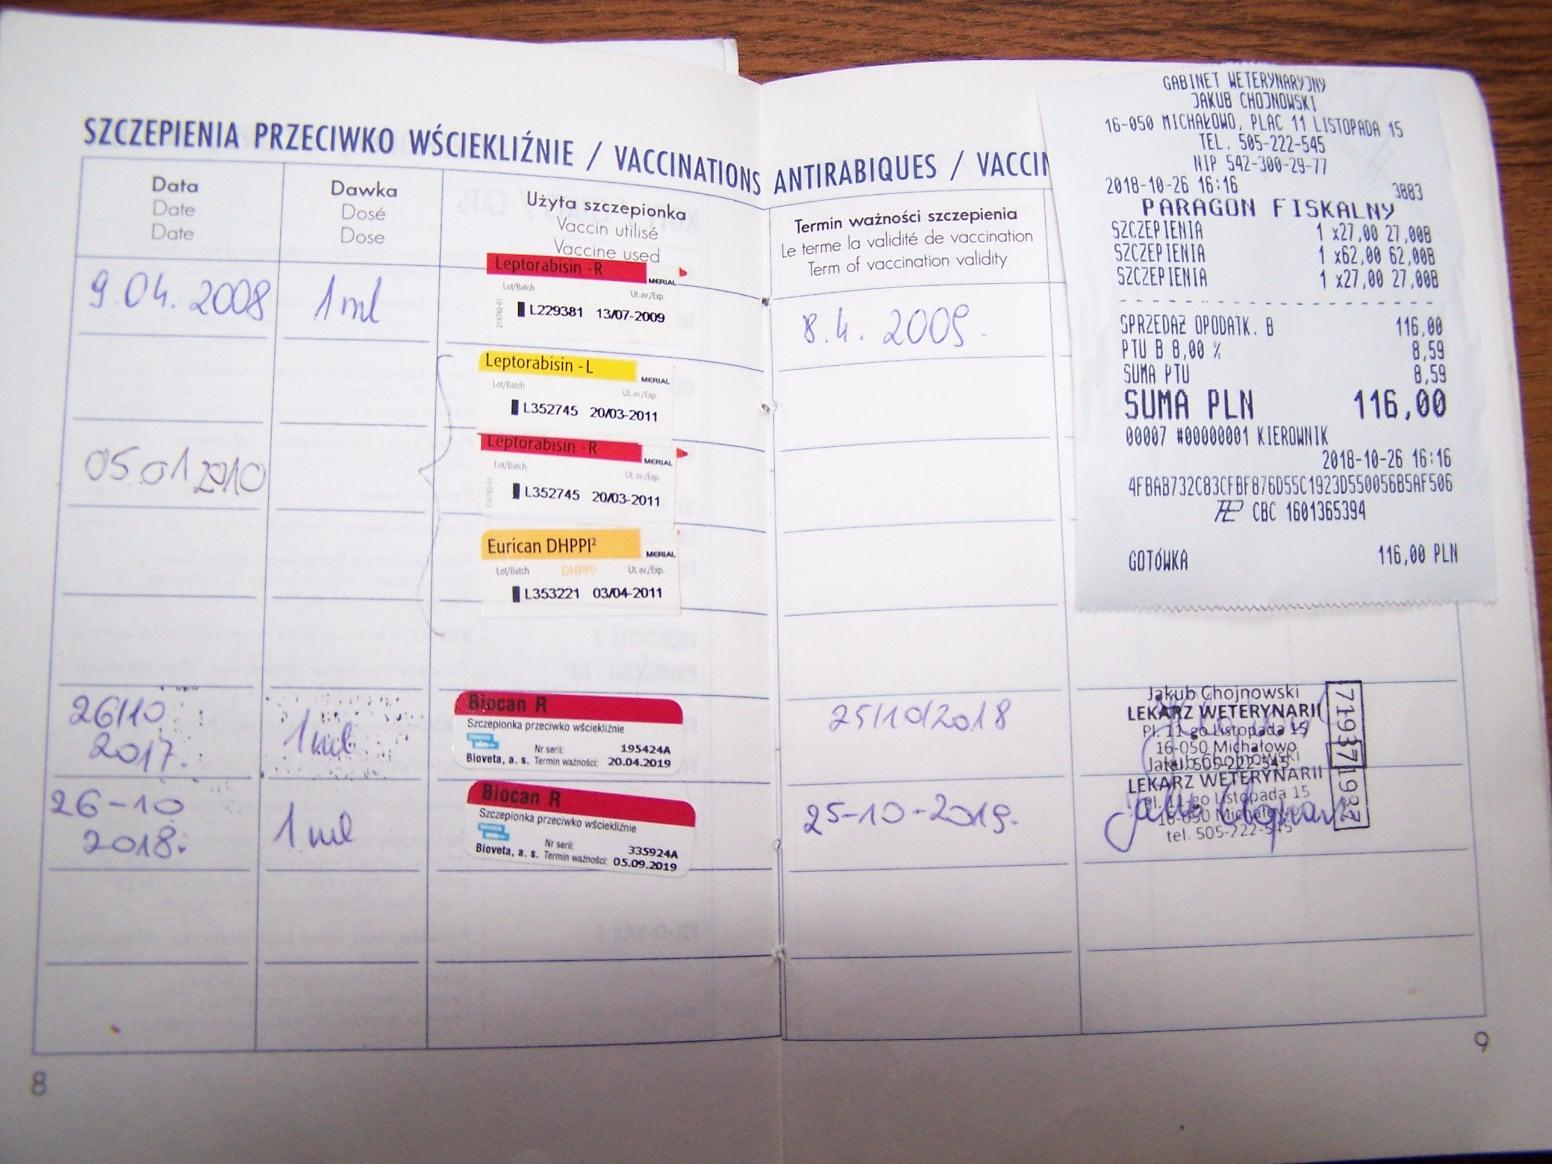 SZCZEPIENIA PRZECIWKO WŚCIEKLIŹNIE / VACCINATIONS ANTIRABIQUES / VACCIN
Data
Date
Date
Dawka
Dosé
Dose
Użyta szczepionka
Vaccin utilisé
Vaccine used
Termin ważności szczepienia
Le terme la validité de vaccination
Term of vaccination validity
9.04.2008
1 ml
Leptorabisin - R
MERIAL
Lot/Batch Ut.av./Exp.
L229381 13/07-2009
8.4.2009.
Leptorabisin - L
MERIAL
Lot/Batch Ut.av./Exp.
L352745 20/03-2011
05.01.2010
Leptorabisin - R
MERIAL
Lot/Batch Ut.av./Exp.
L352745 20/03-2011
Eurican DHPPI²
MERIAL
Lot/Batch DHPPI² Ut.av./Exp.
L353221 03/04-2011
26/10
2017.
1 ml
Biocan R
Szczepionka przeciwko wściekliźnie
Nr serii: 195424A
Bioveta, a. s. Termin ważności: 20.04.2019
25/10/2018
Jakub Chojnowski
LEKARZ WETERYNARII
Pl. 11-go Listopada 15
16-050 Michałowo
tel. 505-222-545
71937
26-10
2018.
1 ml
Biocan R
Szczepionka przeciwko wściekliźnie
Nr serii: 335924A
Bioveta, a. s. Termin ważności: 05.09.2019
25-10-2019.
Jakub Chojnowski
LEKARZ WETERYNARII
Pl. 11-go Listopada 15
16-050 Michałowo
tel. 505-222-545
71937
8
9
GABINET WETERYNARYJNY
JAKUB CHOJNOWSKI
16-050 MICHAŁOWO, PLAC 11 LISTOPADA 15
TEL. 505-222-545
NIP 542-300-29-77
2018-10-26 16:16 3883
PARAGON FISKALNY
SZCZEPIENIA 1 x27,00 27,00B
SZCZEPIENIA 1 x62,00 62,00B
SZCZEPIENIA 1 x27,00 27,00B
SPRZEDAŻ OPODATK. B 116,00
PTU B 8,00 % 8,59
SUMA PTU 8,59
SUMA PLN 116,00
00007 #00000001 KIEROWNIK
2018-10-26 16:16
4FBAB732C83CFBF876D55C1923D550056B5AF506
CBC 1601365394
GOTÓWKA 116,00 PLN